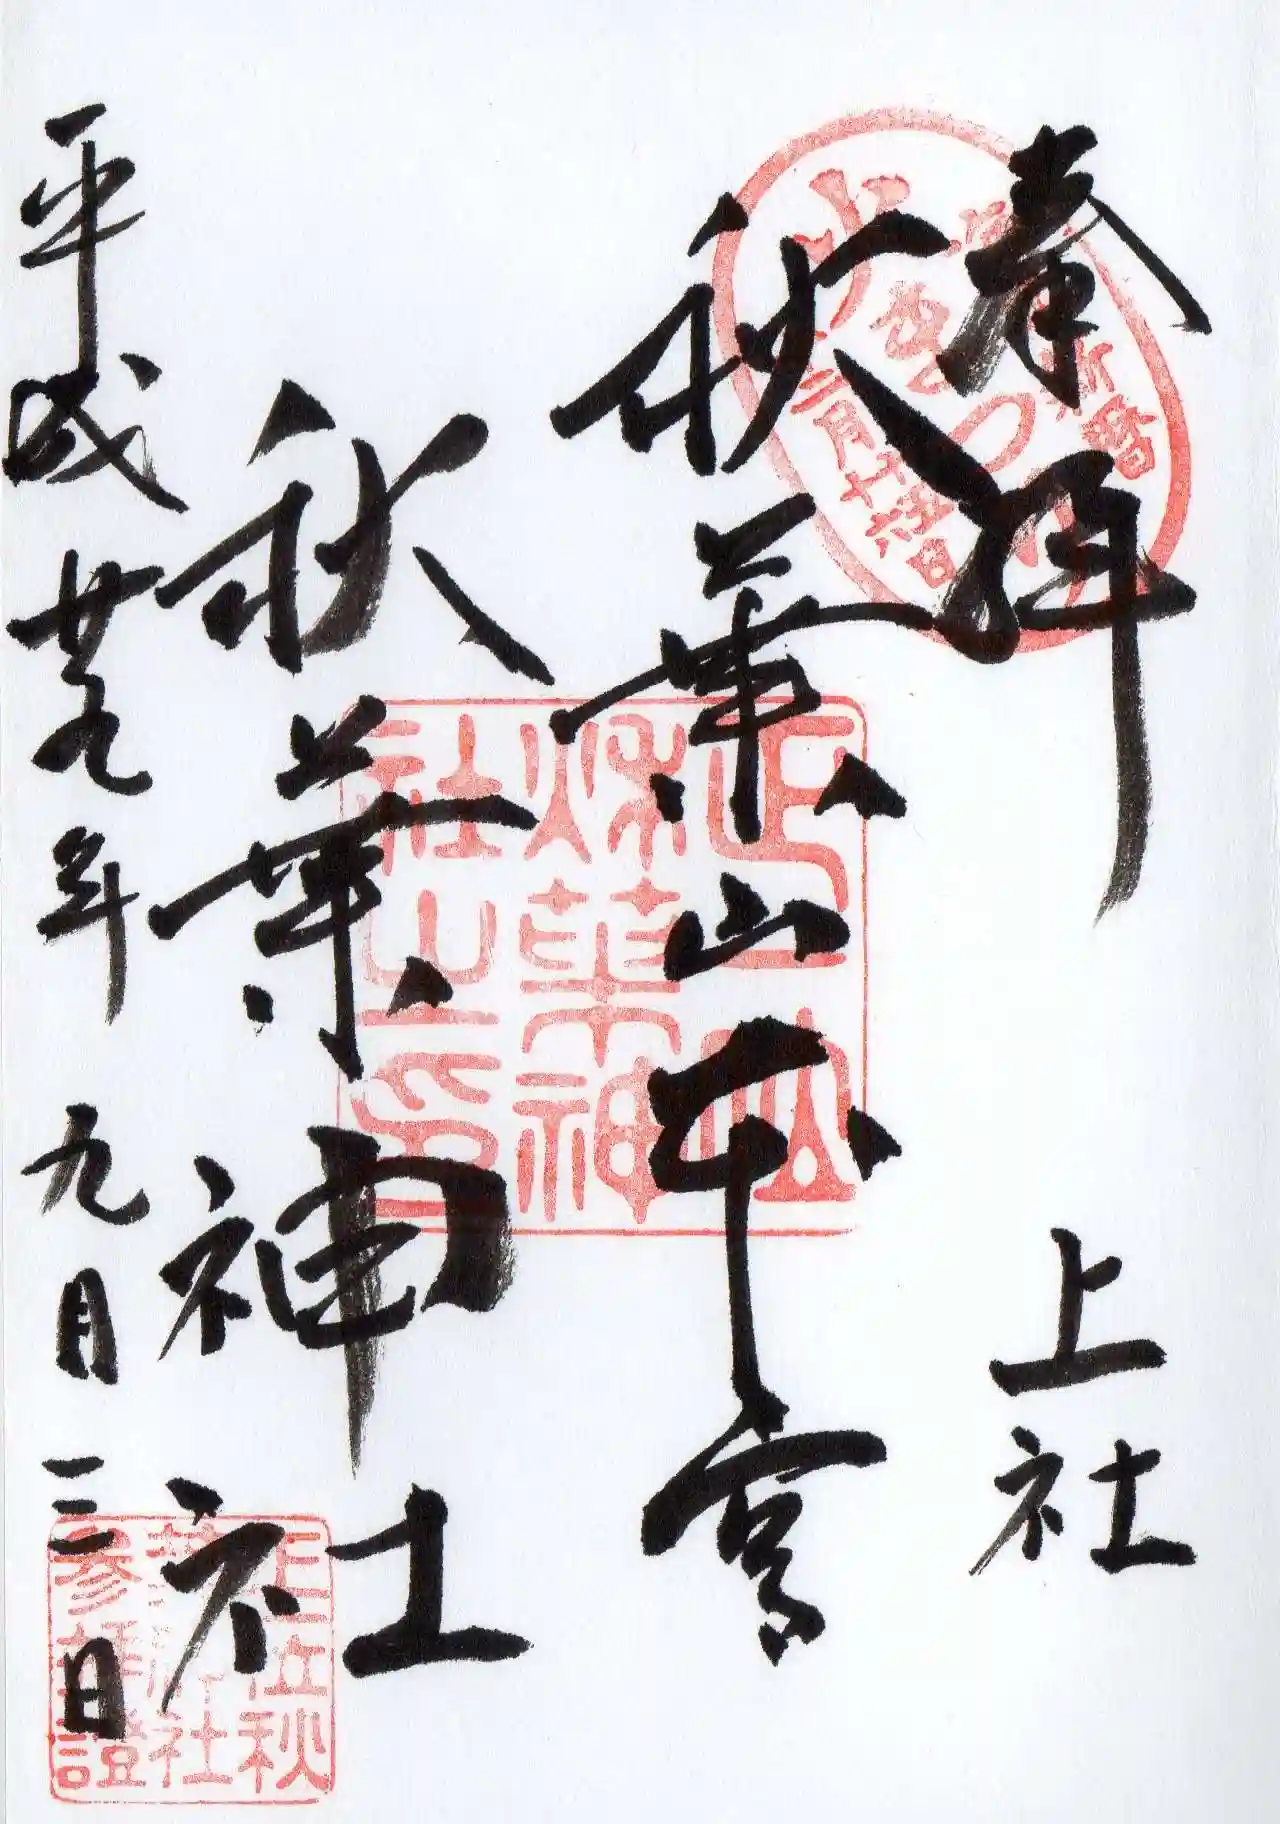 奉拝　上社
秋葉山本宮
秋葉神社
平成廿九年九月三日
正一位
秋葉神
社之印
正一位秋
葉神社
参拝證